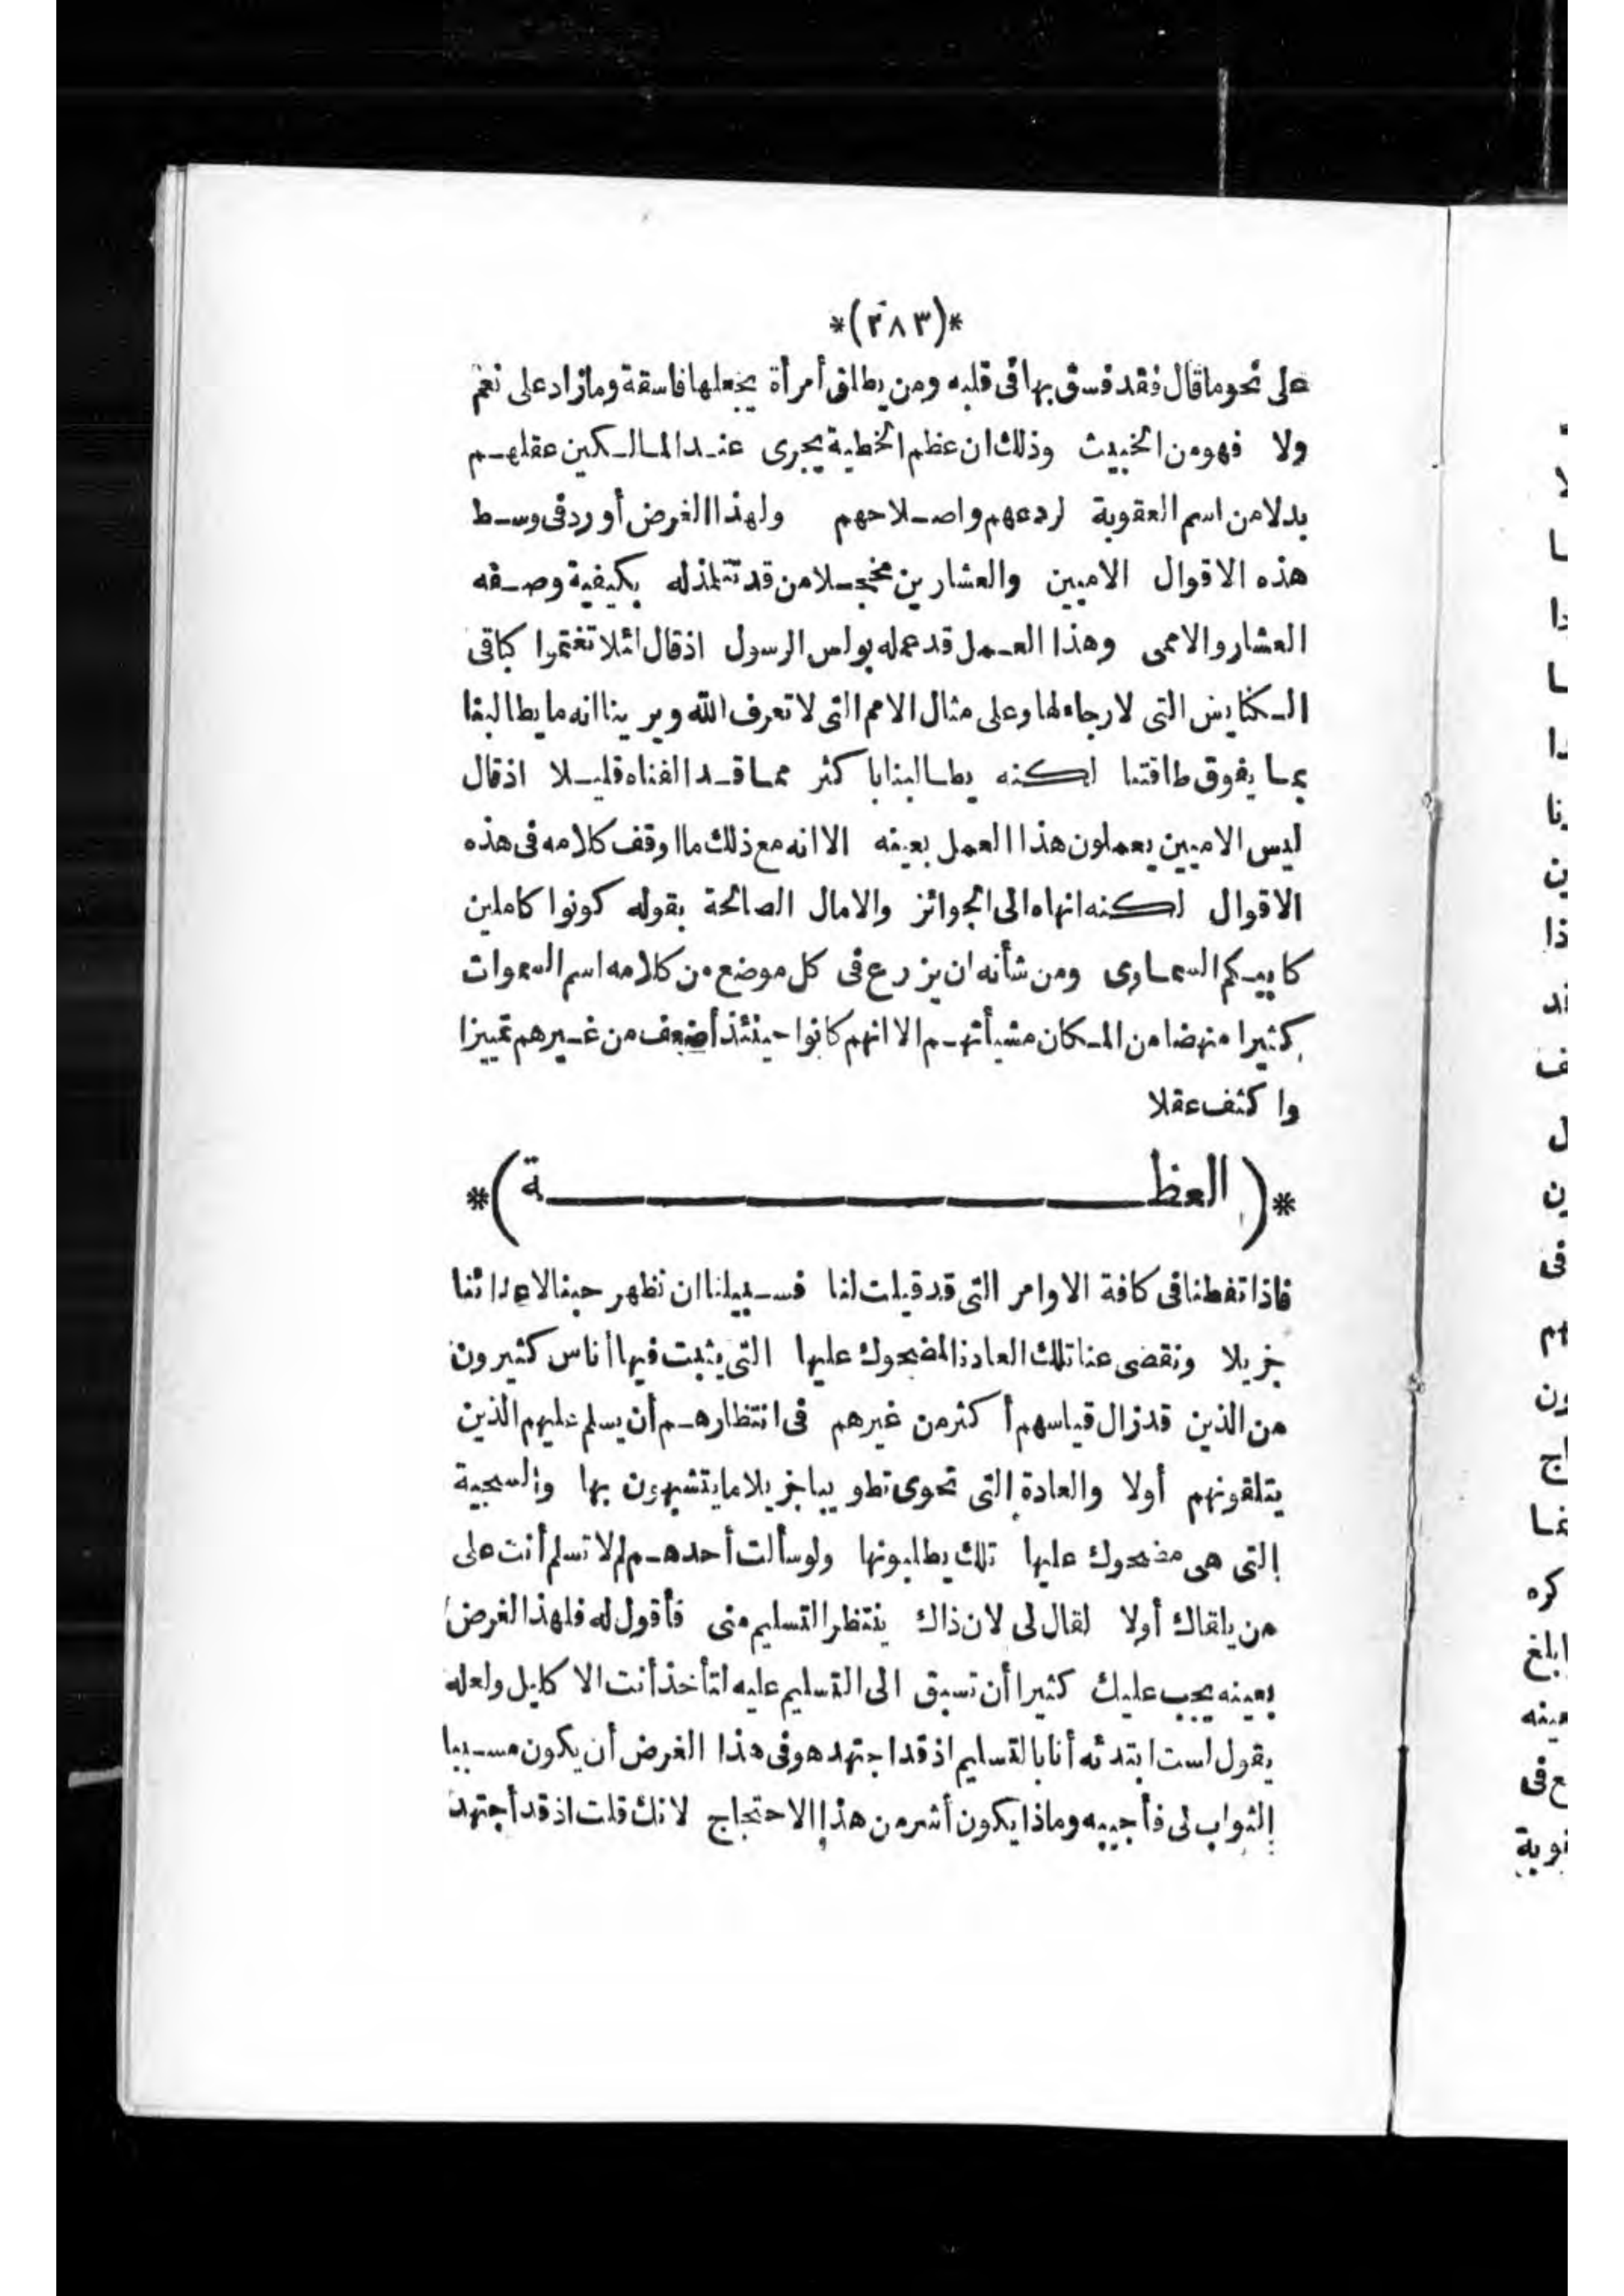 *(٢٨٣)*
على نحو ما قال فقد فسق بها فى قلبه ومن يطلق أمرأة يجعلها فاسقة وما زاد على نعم
ولا فهو من الخبيث وذلك ان عظم الخطية يجرى عند المالكين عقلهم
بدلا من اسم العقوبة لردعهم واصلاحهم ولهذا الغرض أورد فى وسط
هذه الاقوال الاميين والعشارين مخجلا من قد تتلمذ له بكيفية وصفه
العشار والاممى وهذا العمل قد عمله بولس الرسول اذ قال لئلا تغتموا كباقى
الكنايس التى لا رجاء لها وعلى مثال الامم التى لا تعرف الله ويرينا انه ما يطالبنا
بما يفوق طاقتنا لكنه يطالبنا باكثر مما قد الفناه قليلا اذ قال
ليس الاميين يعملون هذا العمل بعينه الا انه مع ذلك ما اوقف كلامه فى هذه
الاقوال لكنه انهاه الى الجوائز والامال الصالحة بقوله كونوا كاملين
كابيكم السماوى ومن شأنه ان يزرع فى كل موضع من كلامه اسم السموات
كثيرا منهضا من المكان مشيأتهم الا انهم كانوا حينئذ أضعف من غيرهم تمييزا
واكثف عقلا
*(العظـــــــــــة)*
فاذا تفطنا فى كافة الاوامر التى قد قيلت لنا فسبيلنا ان نظهر حبنا لاعدائنا
جزيلا ونقضى عنا تلك العادة المضحوك عليها التى يثبت فيها أناس كثيرون
من الذين قد زال قياسهم أكثر من غيرهم فى انتظارهم أن يسلم عليهم الذين
يتلقونهم أولا والعادة التى تحوى تطويبا جزيلا ما يتشبهون بها والسجية
التى هى مضحوك عليها تلك يطلبونها ولو سألت أحدهم لم لا تسلم أنت على
من يلقاك أولا لقال لى لان ذاك ينتظر التسليم منى فأقول له فلهذا الغرض
بعينه يجب عليك كثيرا أن تسبق الى التسليم عليه لتأخذ أنت الاكليل ولعله
يقول لست ابتدئه أنا بالتسليم اذ قد اجتهد هو فى هذا الغرض أن يكون مسببا
الثواب لى فأجيبه وماذا يكون أشر من هذا الاحتجاج لانك قلت اذ قد أجتهد